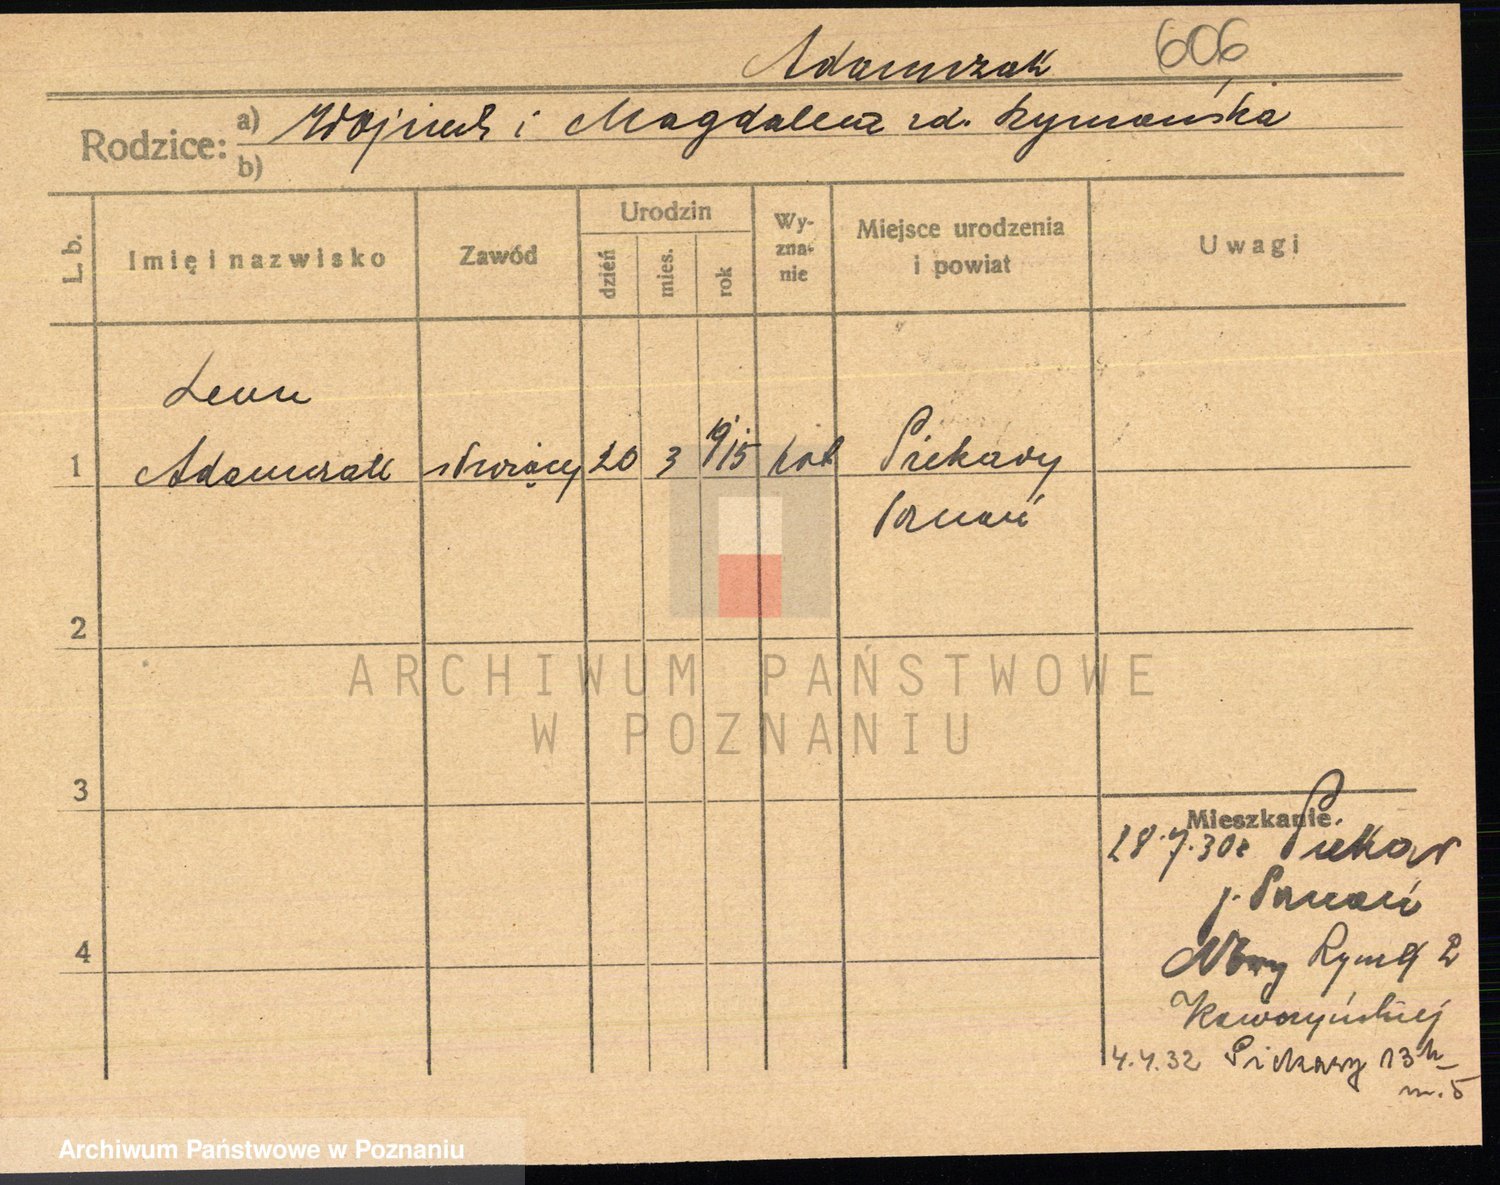 Adamczak 606
Rodzice: a) Wojciech i Magdalena zd. Rymańska
b)
L. b.
Imię i nazwisko
Zawód
Urodzin
dzień
mies.
rok
Wy-
zna-
nie
Miejsce urodzenia
i powiat
Uwagi
Leon
1 Adamczak 20 3 1915 kat Piekary
Poznań
2
3
4
Mieszkanie.
28.7.30 z Piekar
p. Poznań
Rynek 2
4.4.32 Piekary 13
m. 5
ARCHIWUM PAŃSTWOWE
W POZNANIU
Archiwum Państwowe w Poznaniu